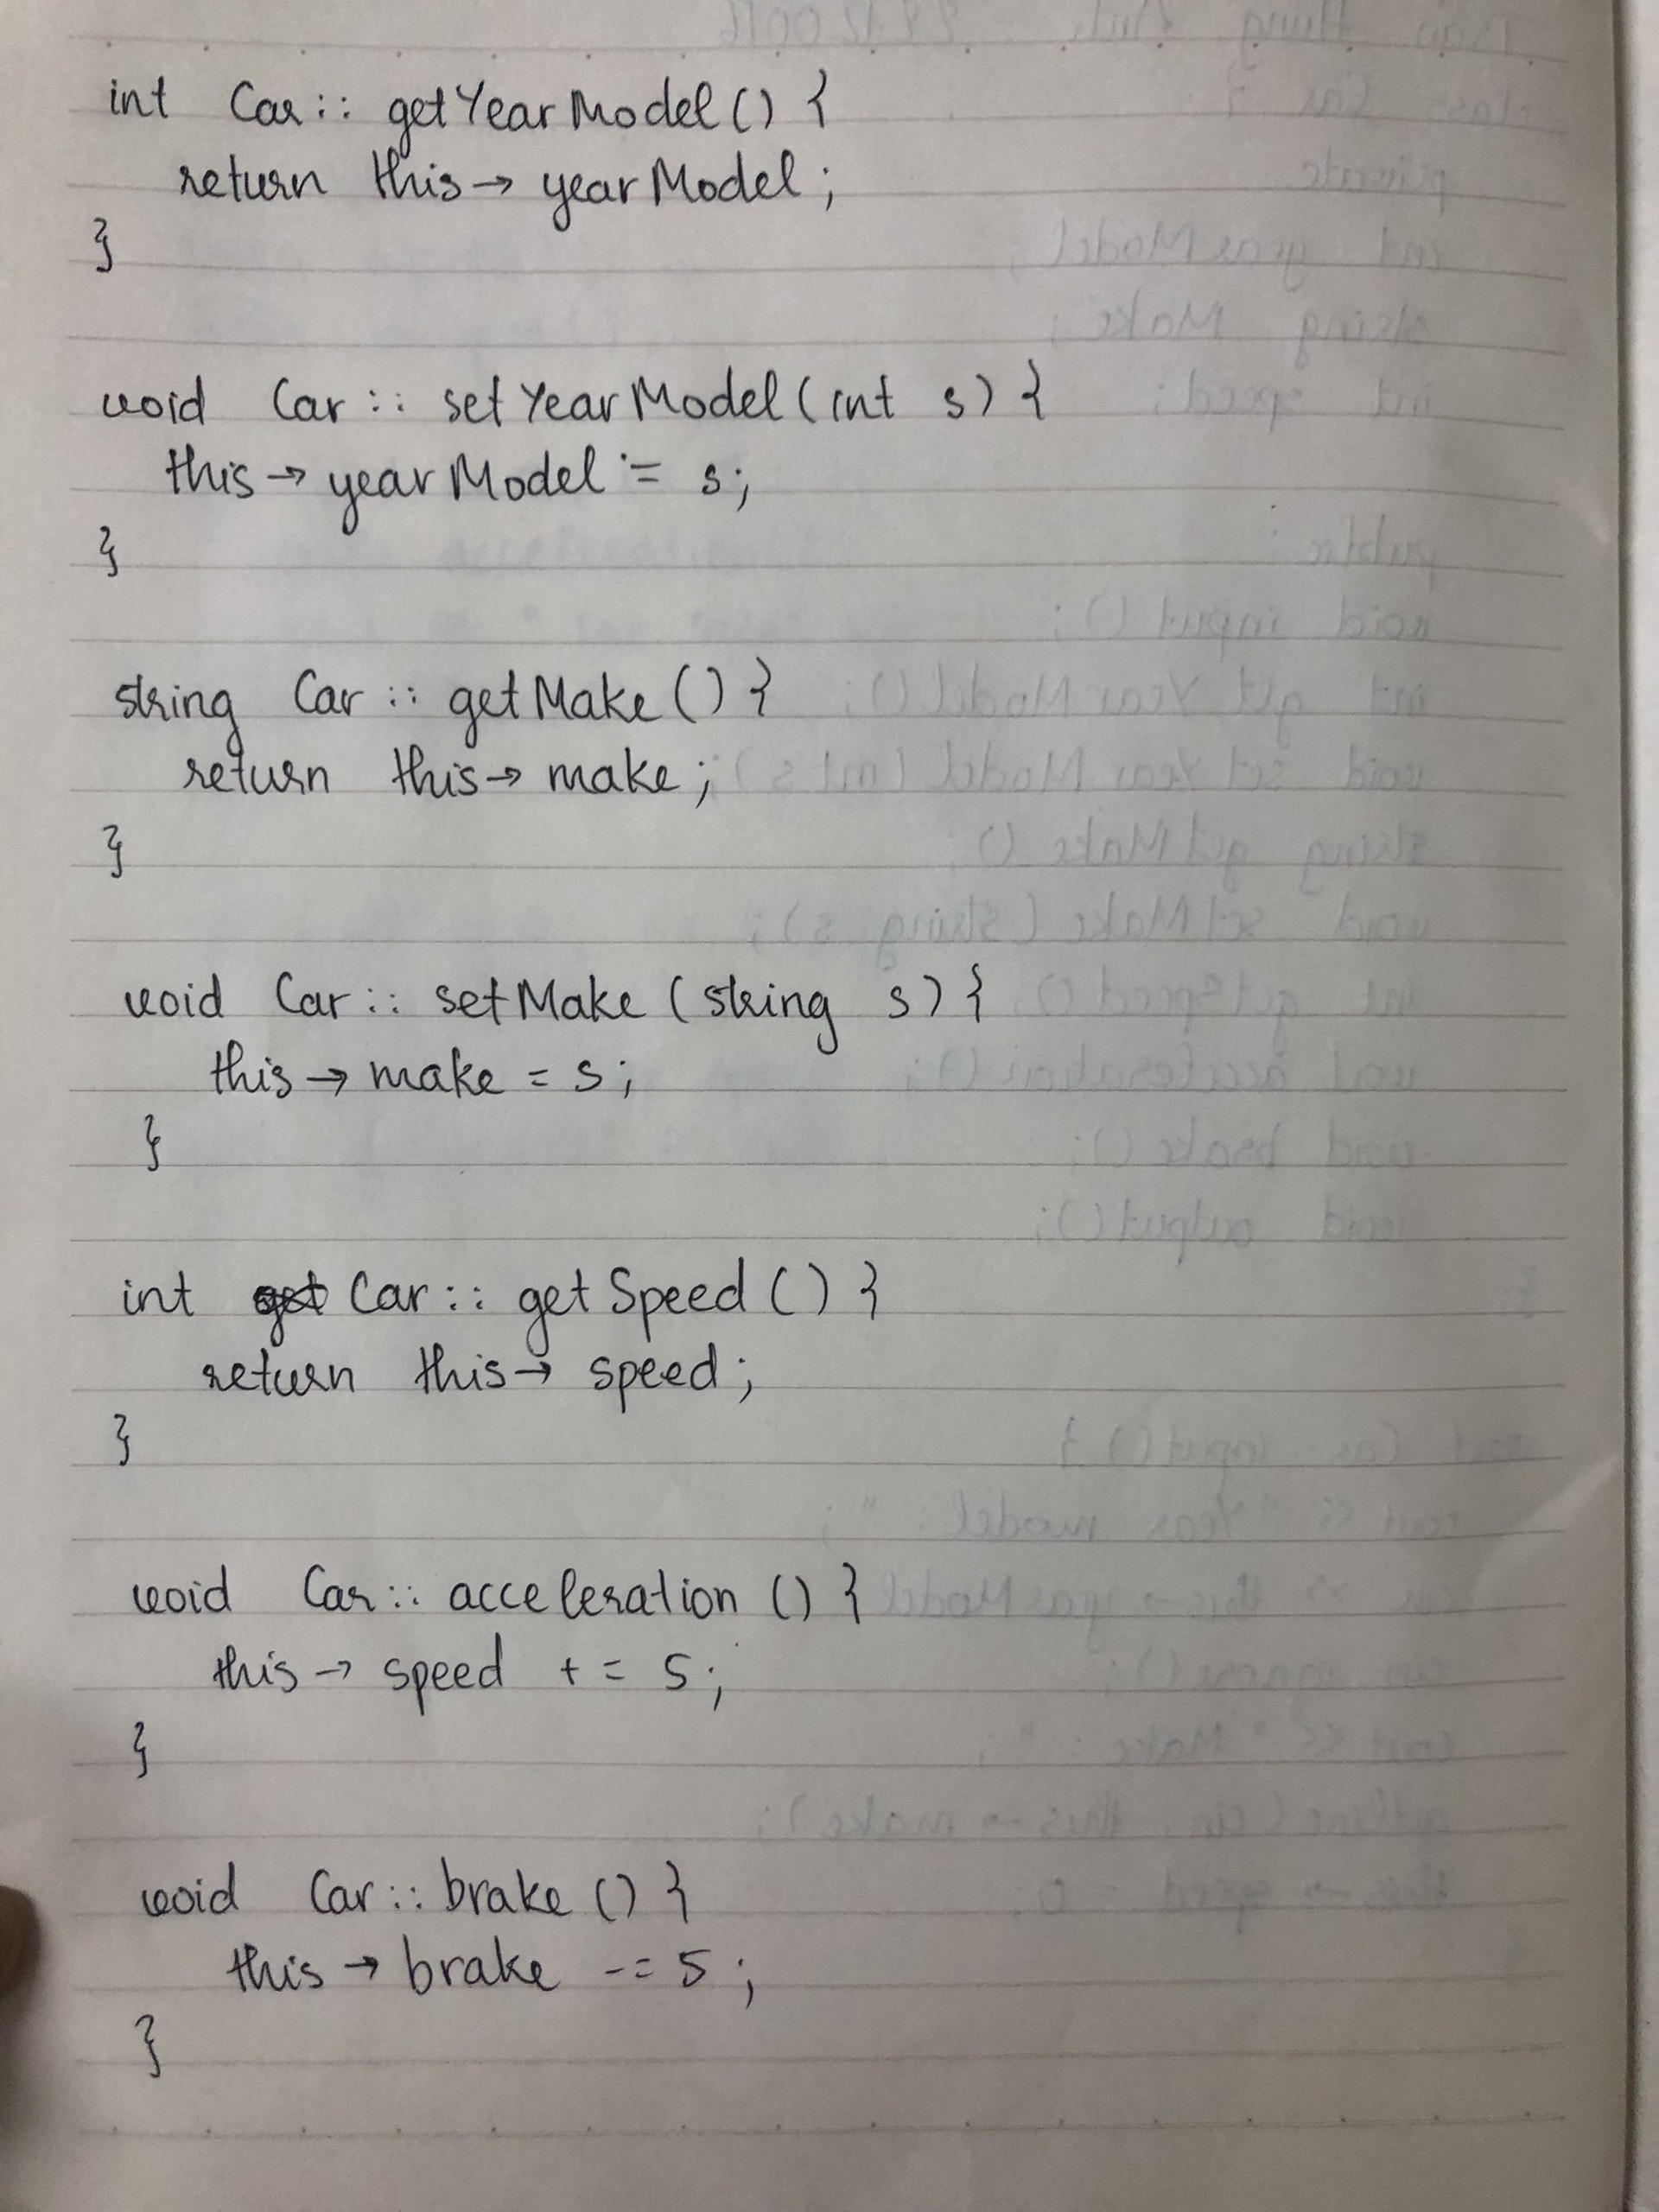 int Car:: getYearModel() {
return this→ yearModel;
}
void Car:: setYearModel(int s) {
this→ yearModel = s;
}
string Car:: getMake() {
return this→ make;
}
void Car:: setMake (string s) {
this→ make = s;
}
int Car:: getSpeed () {
return this→ speed;
}
void Car:: acceleration () {
this→ speed += 5;
}
void Car:: brake () {
this→ brake -= 5;
}